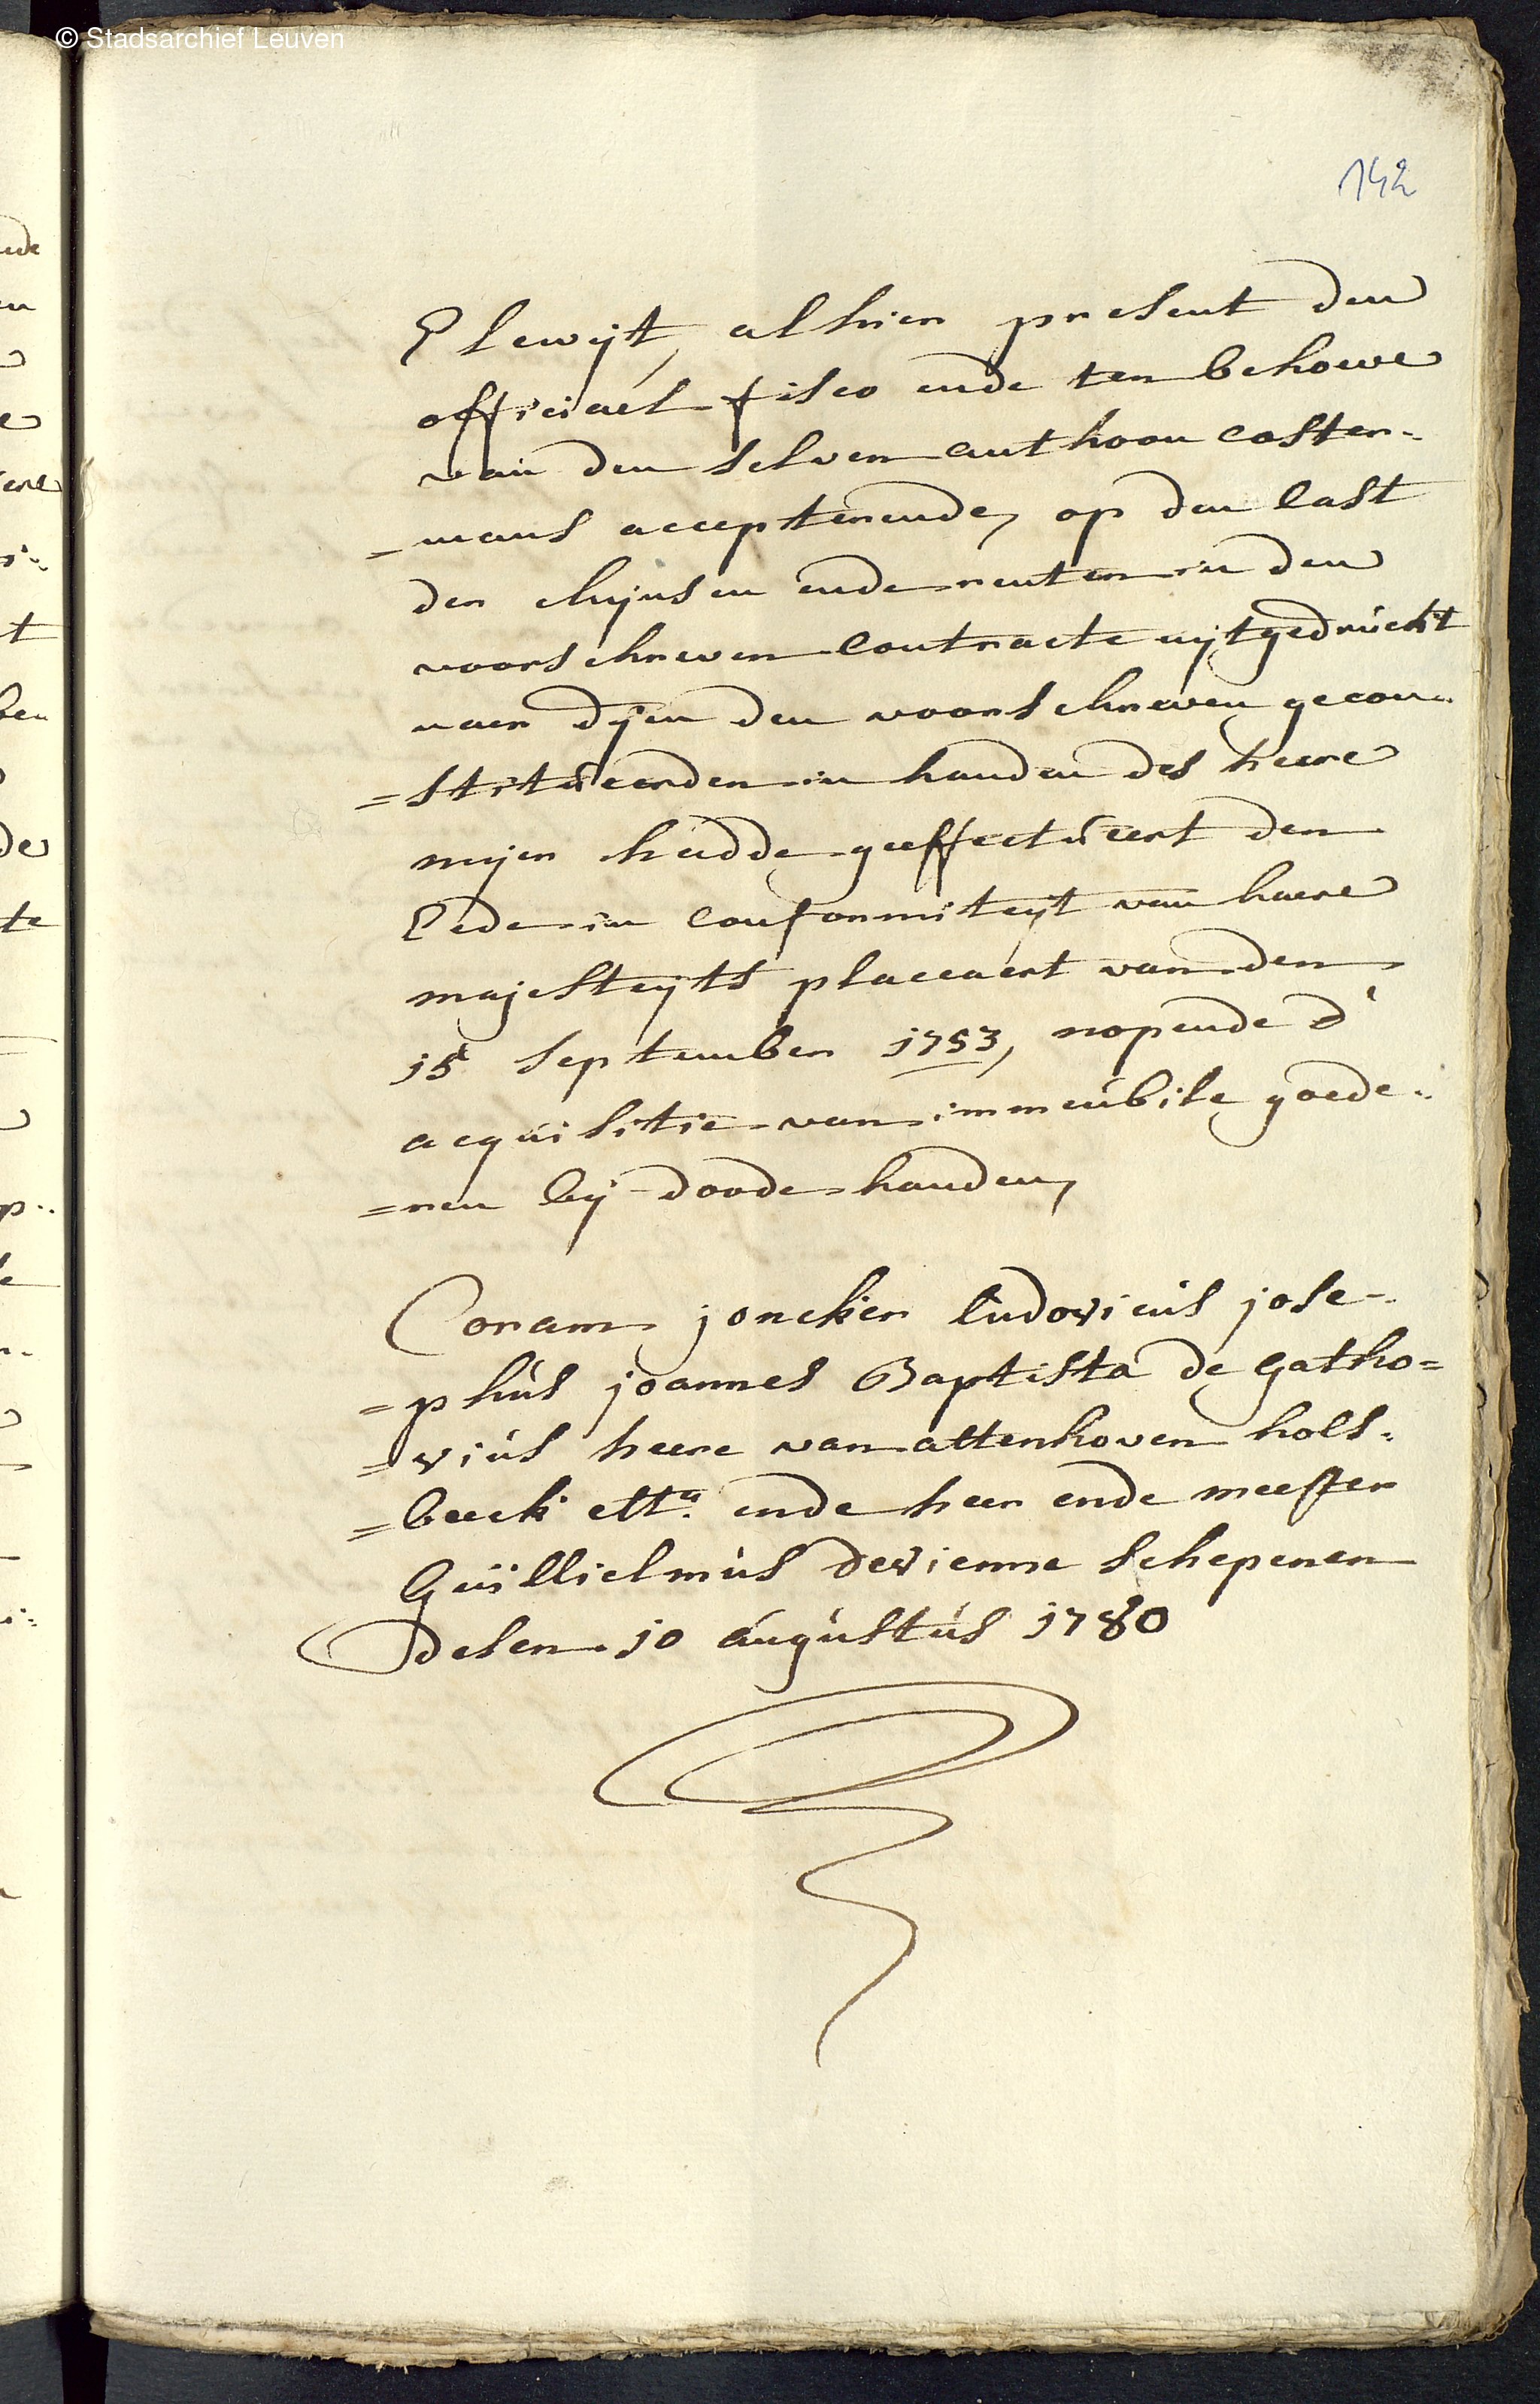 © Stadsarchief Leuven
142
Plewijt, alhier present den
officiael fisco ende ten behoeve
van den selven anthoon coster-
=mans accepterende, op den last
der chijnsen ende renten in den
voorschreven contracte uijtgedruckt
naer dijen den voorschreven gecon-
=stitueerden in handen des heere
meijer hadde geeffectueert den
Eede in conformiteijt van haere
majesteijts placcaert van den
15 september 1753, nopende d'
acquisitie van immeubile goede-
=ren bij doode handen,
Coram joncker Ludovicus jose-
=phus joannes Baptista de Gatho=
=vius heere van attenhoven hols-
=beeck etta. ende heer ende meester
Guillielmus devienne schepenen
desen 10 augustus 1780